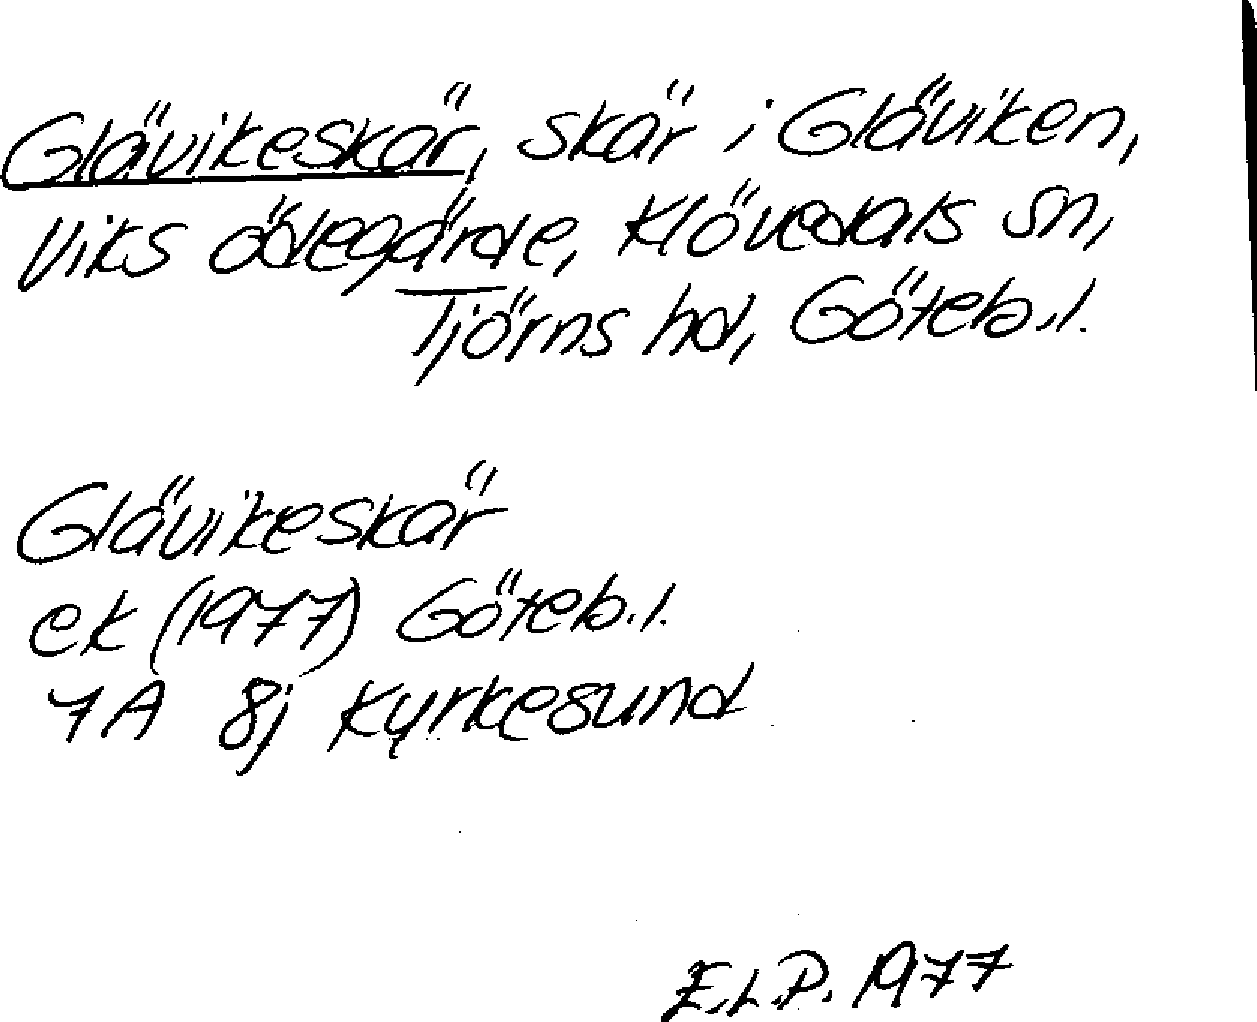 Glävikeskär, skär i Gläviken,
Viks ödegärde, Klövedals sn,
Tjörns hd, Göteb.l.
Glävikeskär
ek (1977) Göteb.l.
7A 8j Kyrkesund
E.L.P. 1977